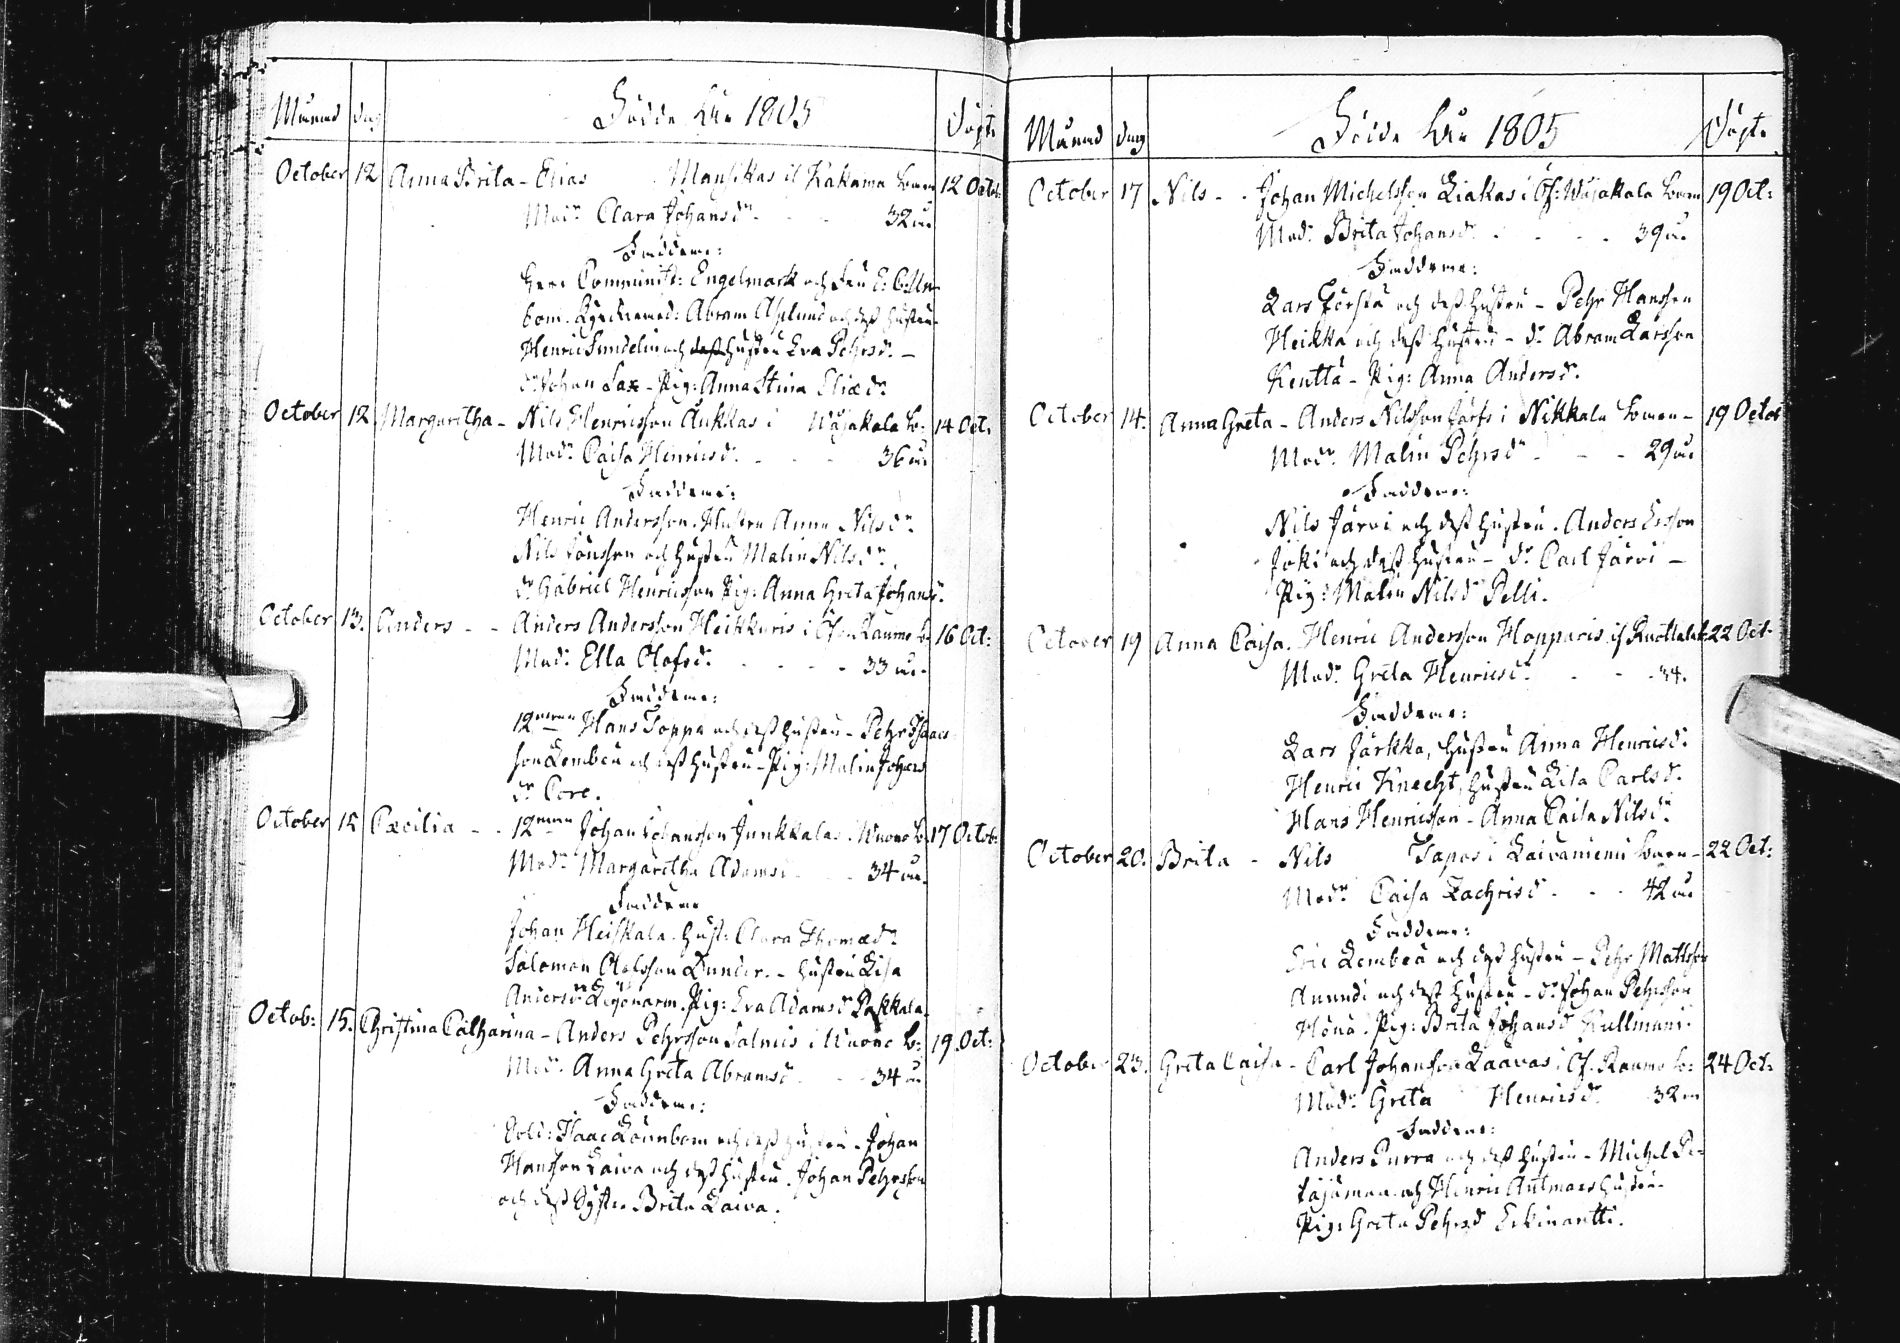 Månad dag Födde År 1805 Döpt.
October 12 Anna Brita - Elias Mansikas if Kakama boern 12 Octob:
Modr Clara Johansdr - - - 32 år
Faddrar:
Herr Comminist: Engelmark och Fru E: C:
bom. Abram Asplund och dess hustru
Henric Sundelin och hustru Eva Pehrsdr -
dr Johan Sax - Pig: Anna Stina Eliædr
October 12 Margaretha - Nils Henricsson Aukkas i Wojakala b: 14 Oct.
Modr Caisa Henricsdr - - - 36 år
Faddrar:
Henric Andersson. Hustru Anna Nilsdr
Nils Jönsson och hustru Malin Nilsdr.
dr Gabriel Henricsson Pig: Anna Greta Johansdr
October 13. Anders - - Anders Andersson Heikkaris i Öf: Raumo b: 16 Oct:
Modr Ella Olofsdr. - - - 33 år.
Faddrar:
12man Hans Toppa och dess hustru - Pehr Isaacs
son Lembeu och dess hustru - Pig: Malin Johans
dr Core.
October 15 Cæcilia - - 12man Johan Johansson Junkkalas i Wuono b. 17 Octob:
Modr Margaretha Adamsd - - 34 år.
Faddrar
Johan Heiskala. Hust: Clara Thomædr
Salomon Olofsson Dunder. - hustru Lisa
Andersdr Pig: Eva Adamsd Pakkala.
Octob: 15. Christina Catharina - Anders Pehrsson Salmis i Wuono b: 19. Oct:
Modr Anna Greta Abramsd - - 34 år
Faddrar:
Sold: Isaac Lönnbom och dess hustru - Johan
Hansson Laiva och dess hustru. Johan Pehrsson
och dess Syster Brita Laiva.
Månad dag Födde År 1805 Döpt.
October 17 Nils - - Johan Michelsson Liakas i Öf: Wojakala boern 19 Oct:
Modr Brita Johansd - - - - 39 år
Faddrar:
Lars Förstä och dess hustru - Pehr Hansson
Heikka och dess hustru - dr Abram Larsson
Kenttä - Pig: Anna Andersdr.
October 14. Anna Greta - Anders Nilsson Järfs i Nikkala boern - 19 Octob
Modr Malin Pehrsdr - - - 29 år
Faddrar:
Nils Järvi och dess hustru. Anders Ersson
Joki och dess hustru - dr Carl Järvi -
Pig: Malin Nilsd Pelli.
October 19 Anna Caisa. Henric Andersson Hopparis if 22 Oct.
Modr Greta Henricsdr - - - 34.
Faddrar:
Lars Järkka, hustru Anna Henricsd.
Henric Knecht, hustru Lisa Carlsd.
Hans Henricsson - Anna Caisa Nilsdr
October 20. Brita - Nils Tapos i Laivaniemi boern - 22 Oct:
Modr Caisa Zachrisd - - - 42 år
Faddrar:
Eric Lembeä och dess hustru - Pehr Mattsson
Anundi och dess hustru - dr Johan Pehrsson
Hönä. Pig: Brita Johansd Kullmani.
October 23. Greta Caisa - Carl Johansson Laavas i Öf. Raumo b: 24 Oct:
Modr Greta Henricsd. 32 år
Faddrar:
Anders Purra och dess hustru - Michel Pe-
täjämaa och Henric hustru.
Pig: Greta Pehrsd Erkinantti.